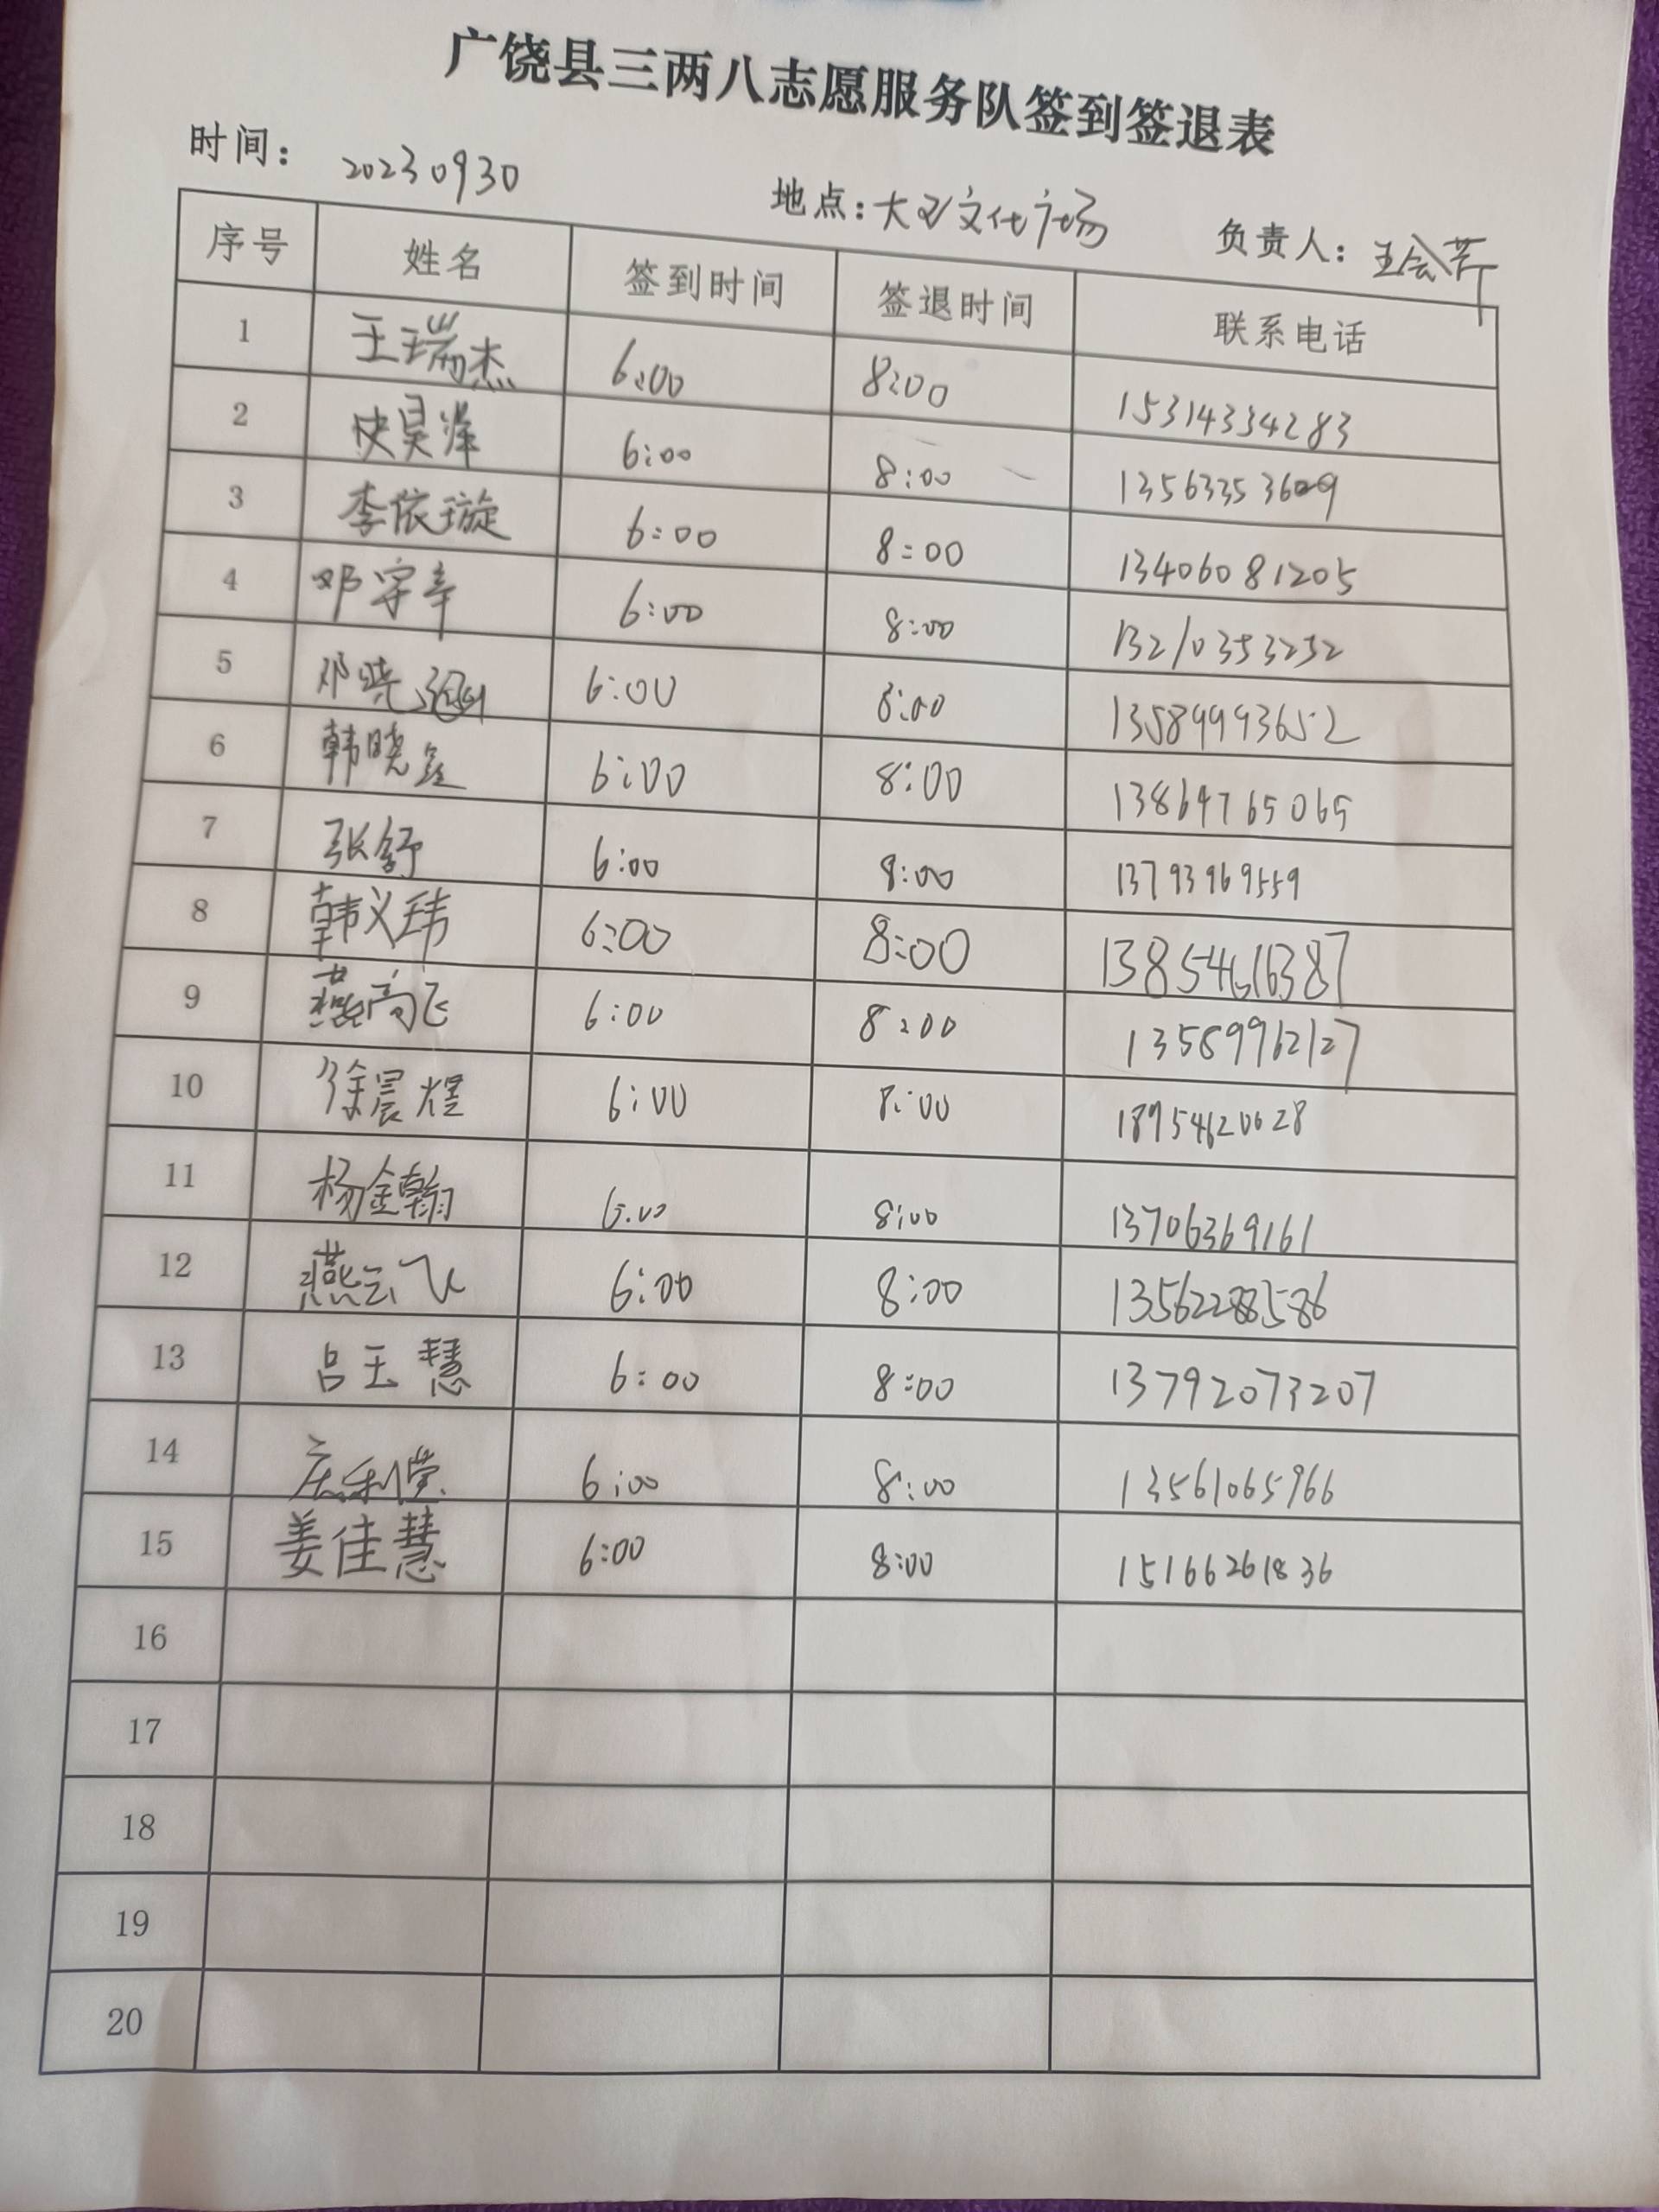 广饶县三两八志愿服务队签到签退表
时间: 20230930 地点:大王文化广场 负责人:王会芹
序号 姓名 签到时间 签退时间 联系电话
1 王瑞杰 6:00 8:00 15314334283
2 史昊泽 6:00 8:00 13563353609
3 李依璇 6:00 8:00 13406081205
4 邓字辛 6:00 8:00 13210353252
5 邓晓 6:00 8:00 13589993652
6 韩晓鑫 6:00 8:00 13864765065
7 张舒 6:00 8:00 13793969559
8 韩义玮 6:00 8:00 13854616387
9 燕高飞 6:00 8:00 13589962127
10 徐晨煜 6:00 8:00 18954620028
11 杨金翰 6:00 8:00 13706369161
12 燕云飞 6:00 8:00 13562288586
13 吕玉慧 6:00 8:00 13792073207
14 利荣 6:00 8:00 13561065966
15 姜佳慧 6:00 8:00 15166261836
16
17
18
19
20